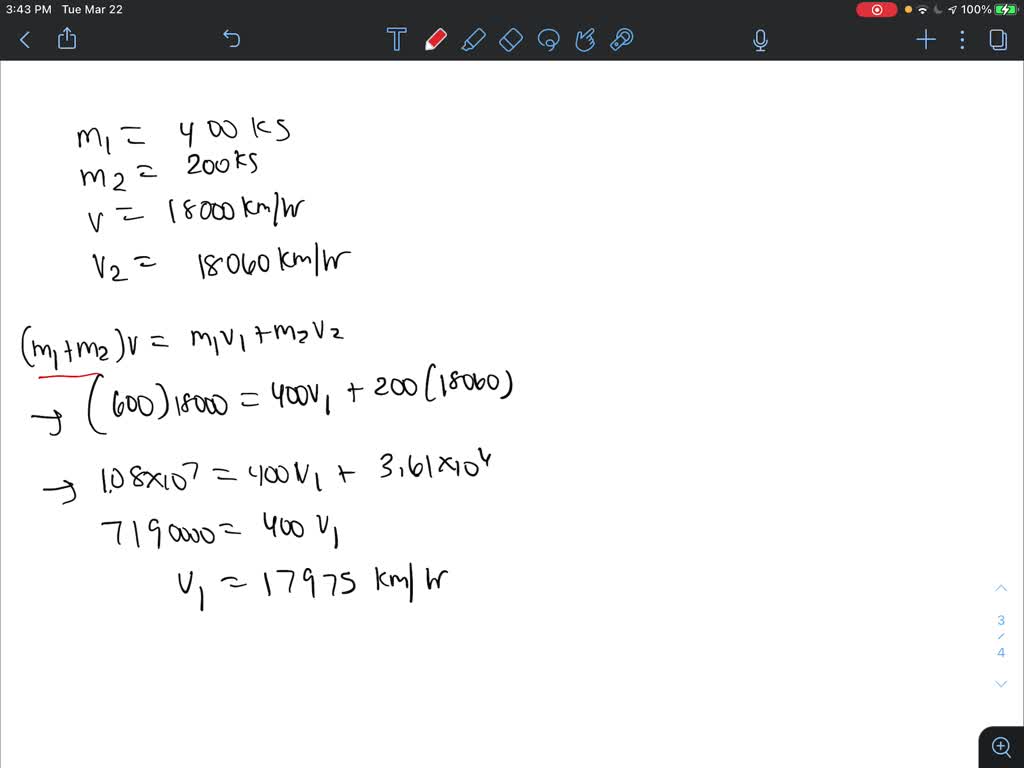 3:43 PM Tue Mar 22
100%
T
m1 = 400 kg
m2 = 200 kg
v = 18000 km/hr
v2 = 18060 km/hr
(m1+m2)v = m1v1 + m2v2
→ (600)18000 = 400v1 + 200(18060)
→ 1.08×10^7 = 400v1 + 3.61×10^6
7190000 = 400 v1
v1 = 17975 km/hr
3
4